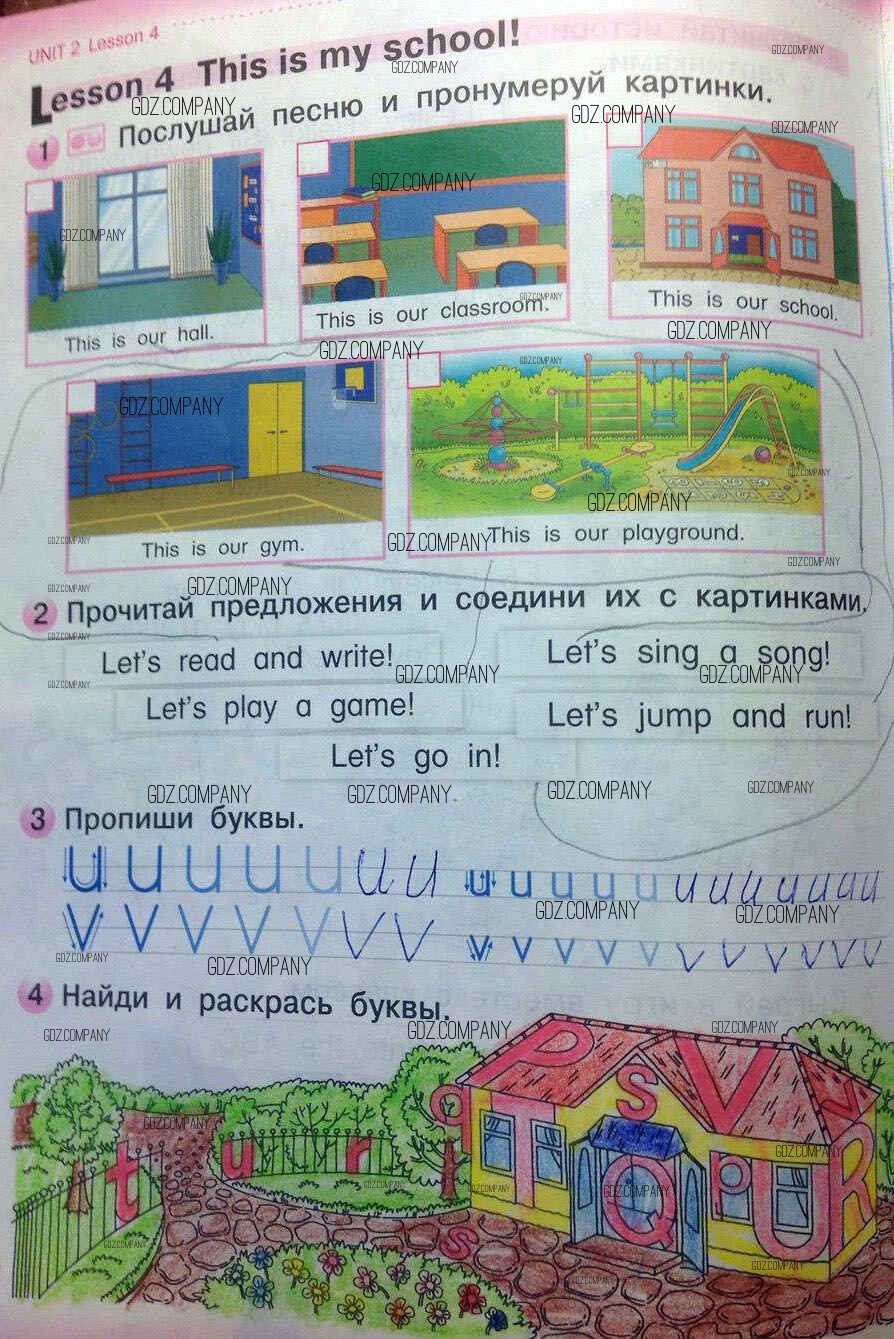 UNIT 2 Lesson 4
Lesson 4 This is my school!
1 Послушай песню и пронумеруй картинки.
This is our hall.
This is our classroom.
This is our school.
This is our gym.
This is our playground.
2 Прочитай предложения и соедини их с картинками.
Let's read and write!
Let's sing a song!
Let's play a game!
Let's jump and run!
Let's go in!
3 Пропиши буквы.
U U U U U U U u u u u u u u u u u u
V V V V V V V v v v v v v v v v v v
4 Найди и раскрась буквы.
P s V v
q T
t u r Q p U R
s
GDZ.COMPANY